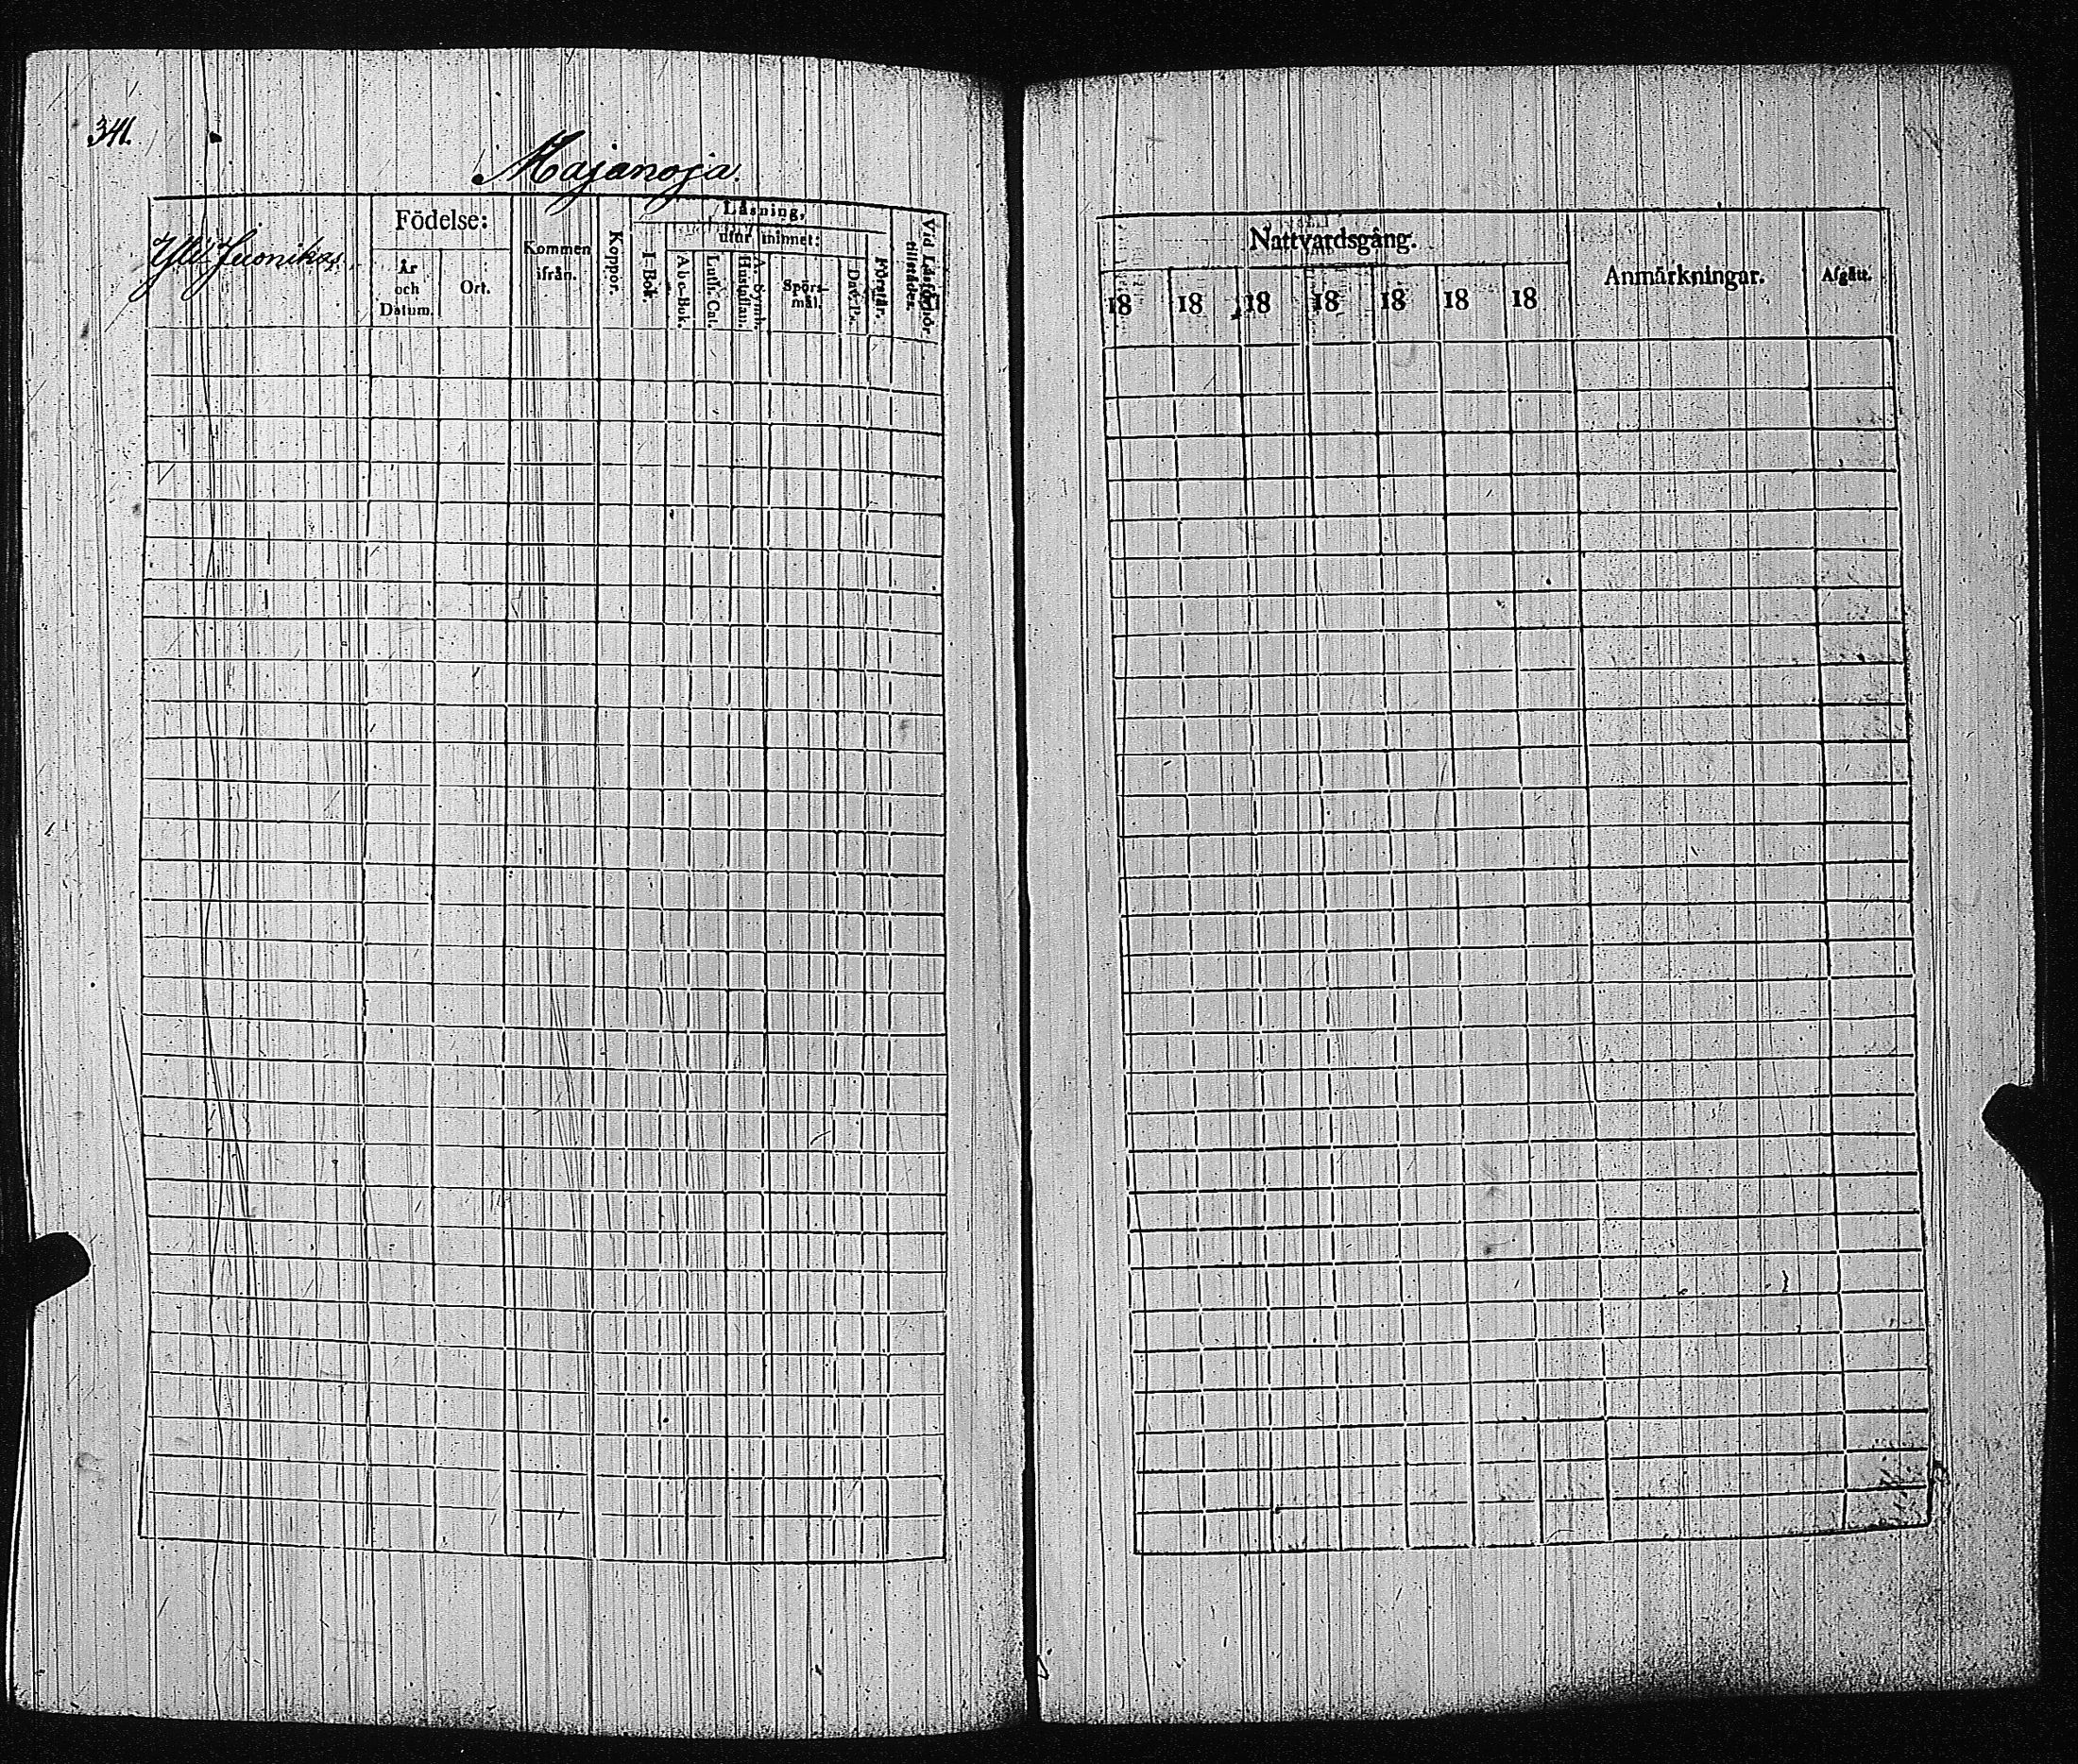 341.
Majanoja.
Födelse:
Läsning,
utur minnet:
Yli Juonikas.
År och Datum.
Ort.
Kommen ifrån.
Koppor.
I-Bok.
Abc-Bok.
Luth. Cat.
A. Symb. Hustaflan.
Spörsmål.
Dav. Ps.
Förstår.
Vid Läsförhör tillstädes.
Nattvardsgång.
Anmärkningar.
Afgått.
18 18 18 18 18 18 18